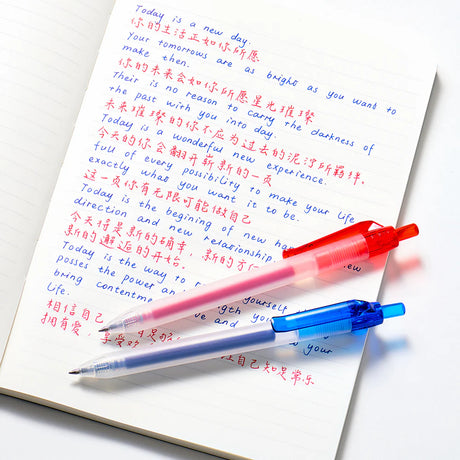 Today is a new day.
你的生活正如你所愿
Your tomorrows are as bright as you want to
make then.
你的未来会如你所愿星光璀璨
Their is no reason to carry the darkness of
the past with you into day.
未来璀璨的你不应为过去的泥泞所羁绊.
Today is a wonderful new experience.
今天的你会翻开崭新的一页
full of every possibility to make your life
exactly what you want it to be.
这一页你有无限可能做自己
Today is the begining of new
direction and new relationship. new
今天将是新的确幸, 新的方
新的邂逅的开始.
Today is the way to yourself
posses the power an
bring contentme ve and your
life.
相信自己
拥有爱, 享受
自己知足常乐